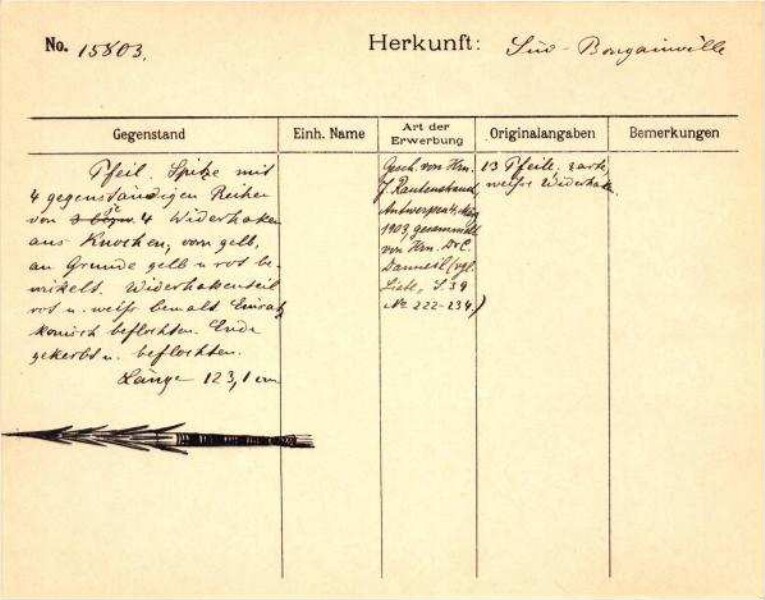 No. 15803.
Herkunft: Süd-Bougainville
Gegenstand
Einh. Name
Art der Erwerbung
Originalangaben
Bemerkungen
Pfeil. Spitze mit
4 gegenständigen Reihen
von 3 bezw. je 4 Widerhaken
aus Knochen, vorn gelb,
an Grunde gelb u. rot be-
wickelt. Widerhakenteil
rot u. weiß bemalt Einsatz
konisch beflochten. Ende
gekerbt u. beflochten.
Länge 123,1 cm
Gesch. von Hrn.
J. Rautenstrauch,
Antwerpen
1903, gesammelt
von Hrn. Dr. C.
Danneil (vgl.
Liste, S 39
No 222-234.)
13 Pfeile, zarte,
weiße Widerhak.